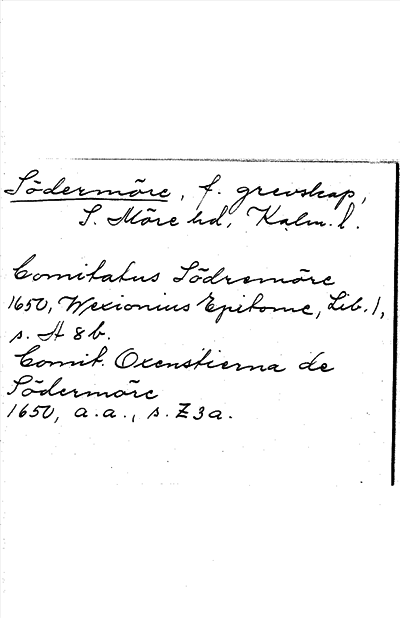 Södermöre, f. grevskap,
S. Möre hd, Kalm. l.
Comitatus Södremöre
1650, Wexionius Epitome, Lib. 1,
s. A 8 b.
Comit. Oxenstierna de
Södermöre
1650, a.a., s. Z 3 a.